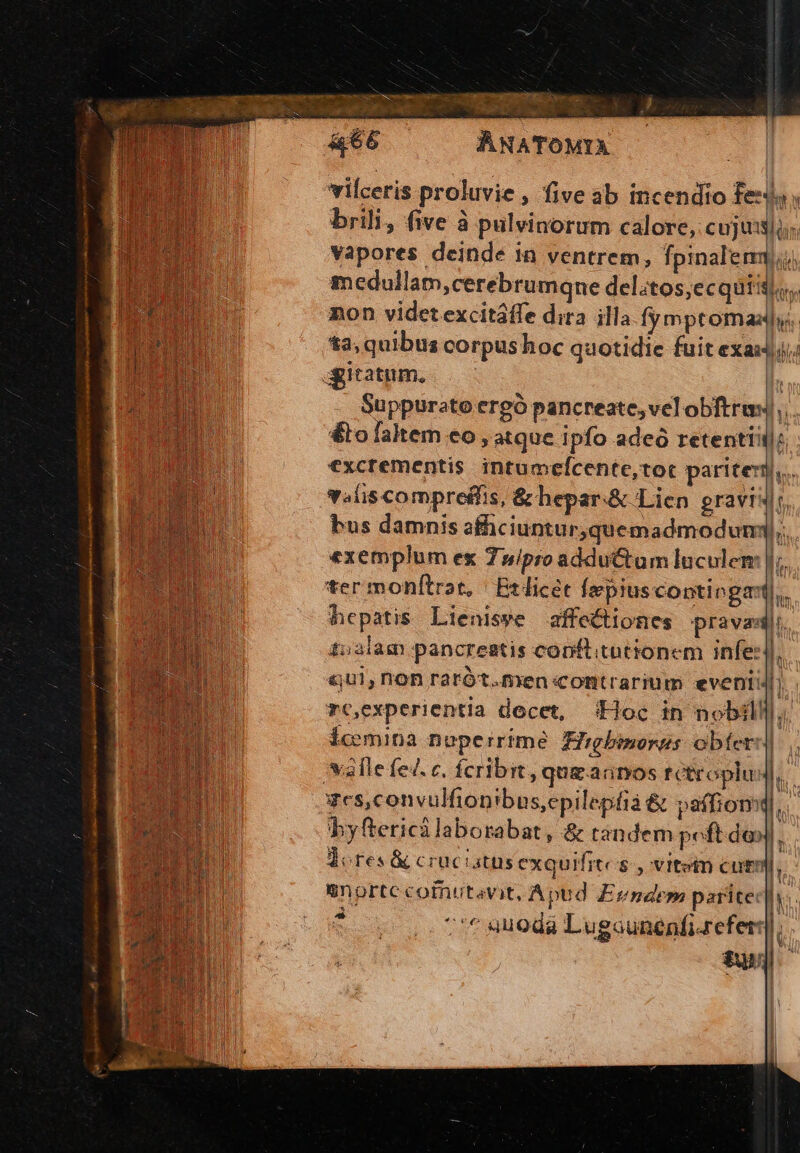 466 ANATOMIA
viſceris proluvie, ſive ab incendio fe
brili, ſive à pulvinorum calore, cujus
vapores deinde in ventrem, ſpinalem
medullam, cerebrumque delatos, ecquis
non videt excitáſſe dira illa ſymptoma
ta, quibus corpus hoc quotidie fuit exa
gitatum.
Suppurato ergò pancreate, vel obſtru
cto ſaltem eo, atque ipſo adeò retentis
excrementis intumeſcente, tot pariter
vaſis compreſſis, & hepar & Lien gravi
bus damnis afficiuntur, quemadmodum
exemplum ex Tulpio adductum luculen
ter monſtrat. Et licèt ſæpius contingat
hepatis Lienisve affectiones pravam
pancreatis conſtitutionem infer
qui, non raròt.men contrarium eveni
re, experientia docet. Hoc in nobili
fœmina nuperrimè Highmorus obſer
vaſſe ſed. c. ſcribit, quæ annos retroplu
res, convulſionibus, epilepſiâ & paſſione
hyſtericâ laborabat, & tandem poſt do
lores & cruciatus exquiſitos, vitam cum
morte commutavit. Apud Eundem pariter
quodã Lugdunenſi refer
tur